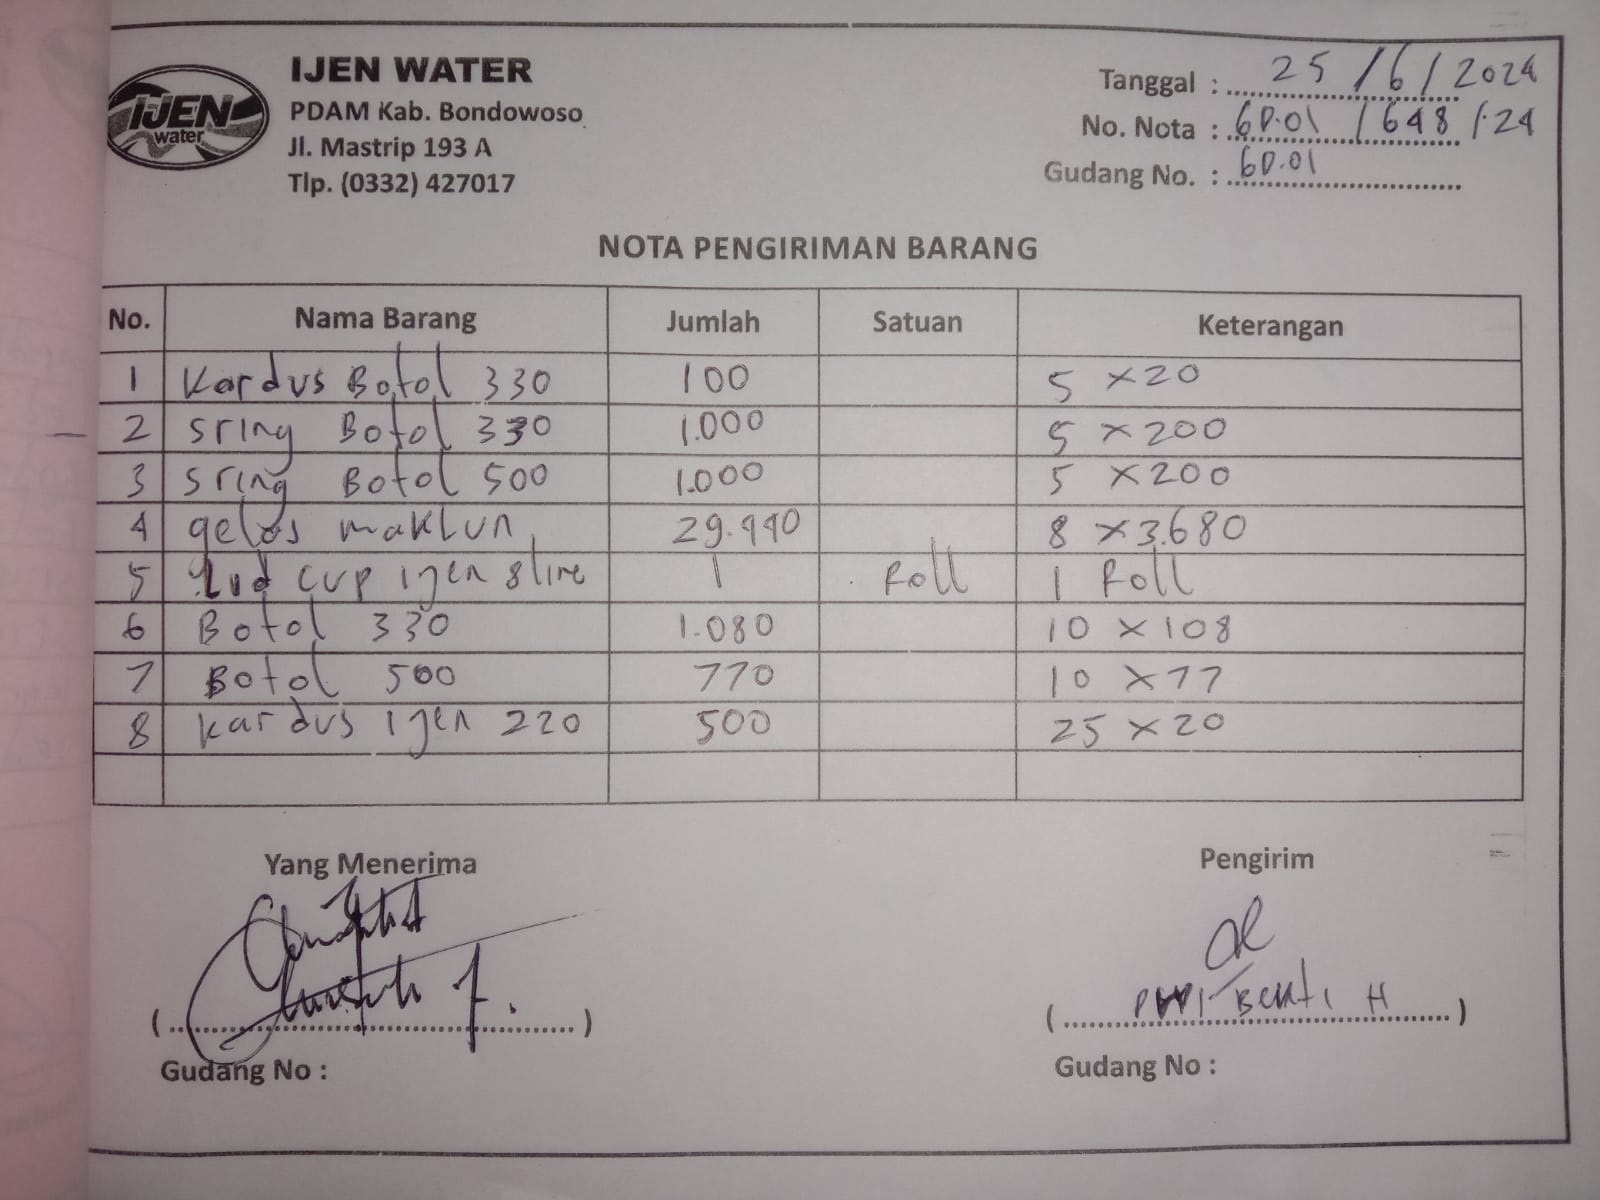 IJEN
water
IJEN WATER
PDAM Kab. Bondowoso
Jl. Mastrip 193 A
Tlp. (0332) 427017
Tanggal : 25 / 6 / 2024
No. Nota : GD.01 / 648 / 24
Gudang No. : GD.01
NOTA PENGIRIMAN BARANG
No. Nama Barang Jumlah Satuan Keterangan
1 Kardus Botol 330 100 5 x 20
2 Sring Botol 330 1.000 5 x 200
3 Sring Botol 500 1.000 5 x 200
4 gelas maklun 29.440 8 x 3.680
5 Lid cup ijen 8 line 1 Roll 1 Roll
6 Botol 330 1.080 10 x 108
7 Botol 500 770 10 x 77
8 Kardus ijen 220 500 25 x 20
Yang Menerima Pengirim
( ) ( H )
Gudang No : Gudang No :